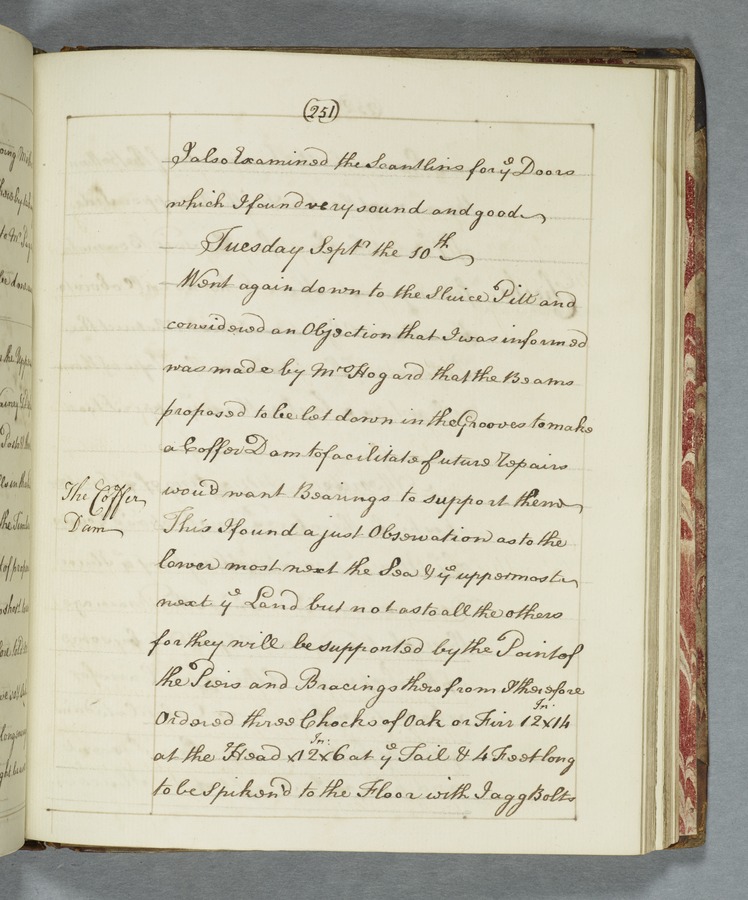 (251)
I also Examined the Scantlins for yᵉ Doors
which I found very sound and good
Tuesday Septʳ the 10ᵗʰ
Went again down to the Sluice Pitt and
considered an Objection that I was informed
was made by Mʳ Hogard that the Beams
proposed to be let down in the Grooves to make
a Coffer Dam to facilitate future repairs
wou'd want Bearings to support them
The Coffer
Dam
This I found a just Observation as to the
lower most next the Sea & yᵉ uppermost
next yᵉ Land but not as to all the others
for they will be supported by the Point of
the Piers and Bracings therefrom I therefore
Ordered three Chocks of Oak or Firr 12ˣ14 Inˢ
at the Head x 12ˣ6 Inˢ at yᵉ Tail & 4 Feet long
to be Spiken'd to the Floor with Jagg Bolts